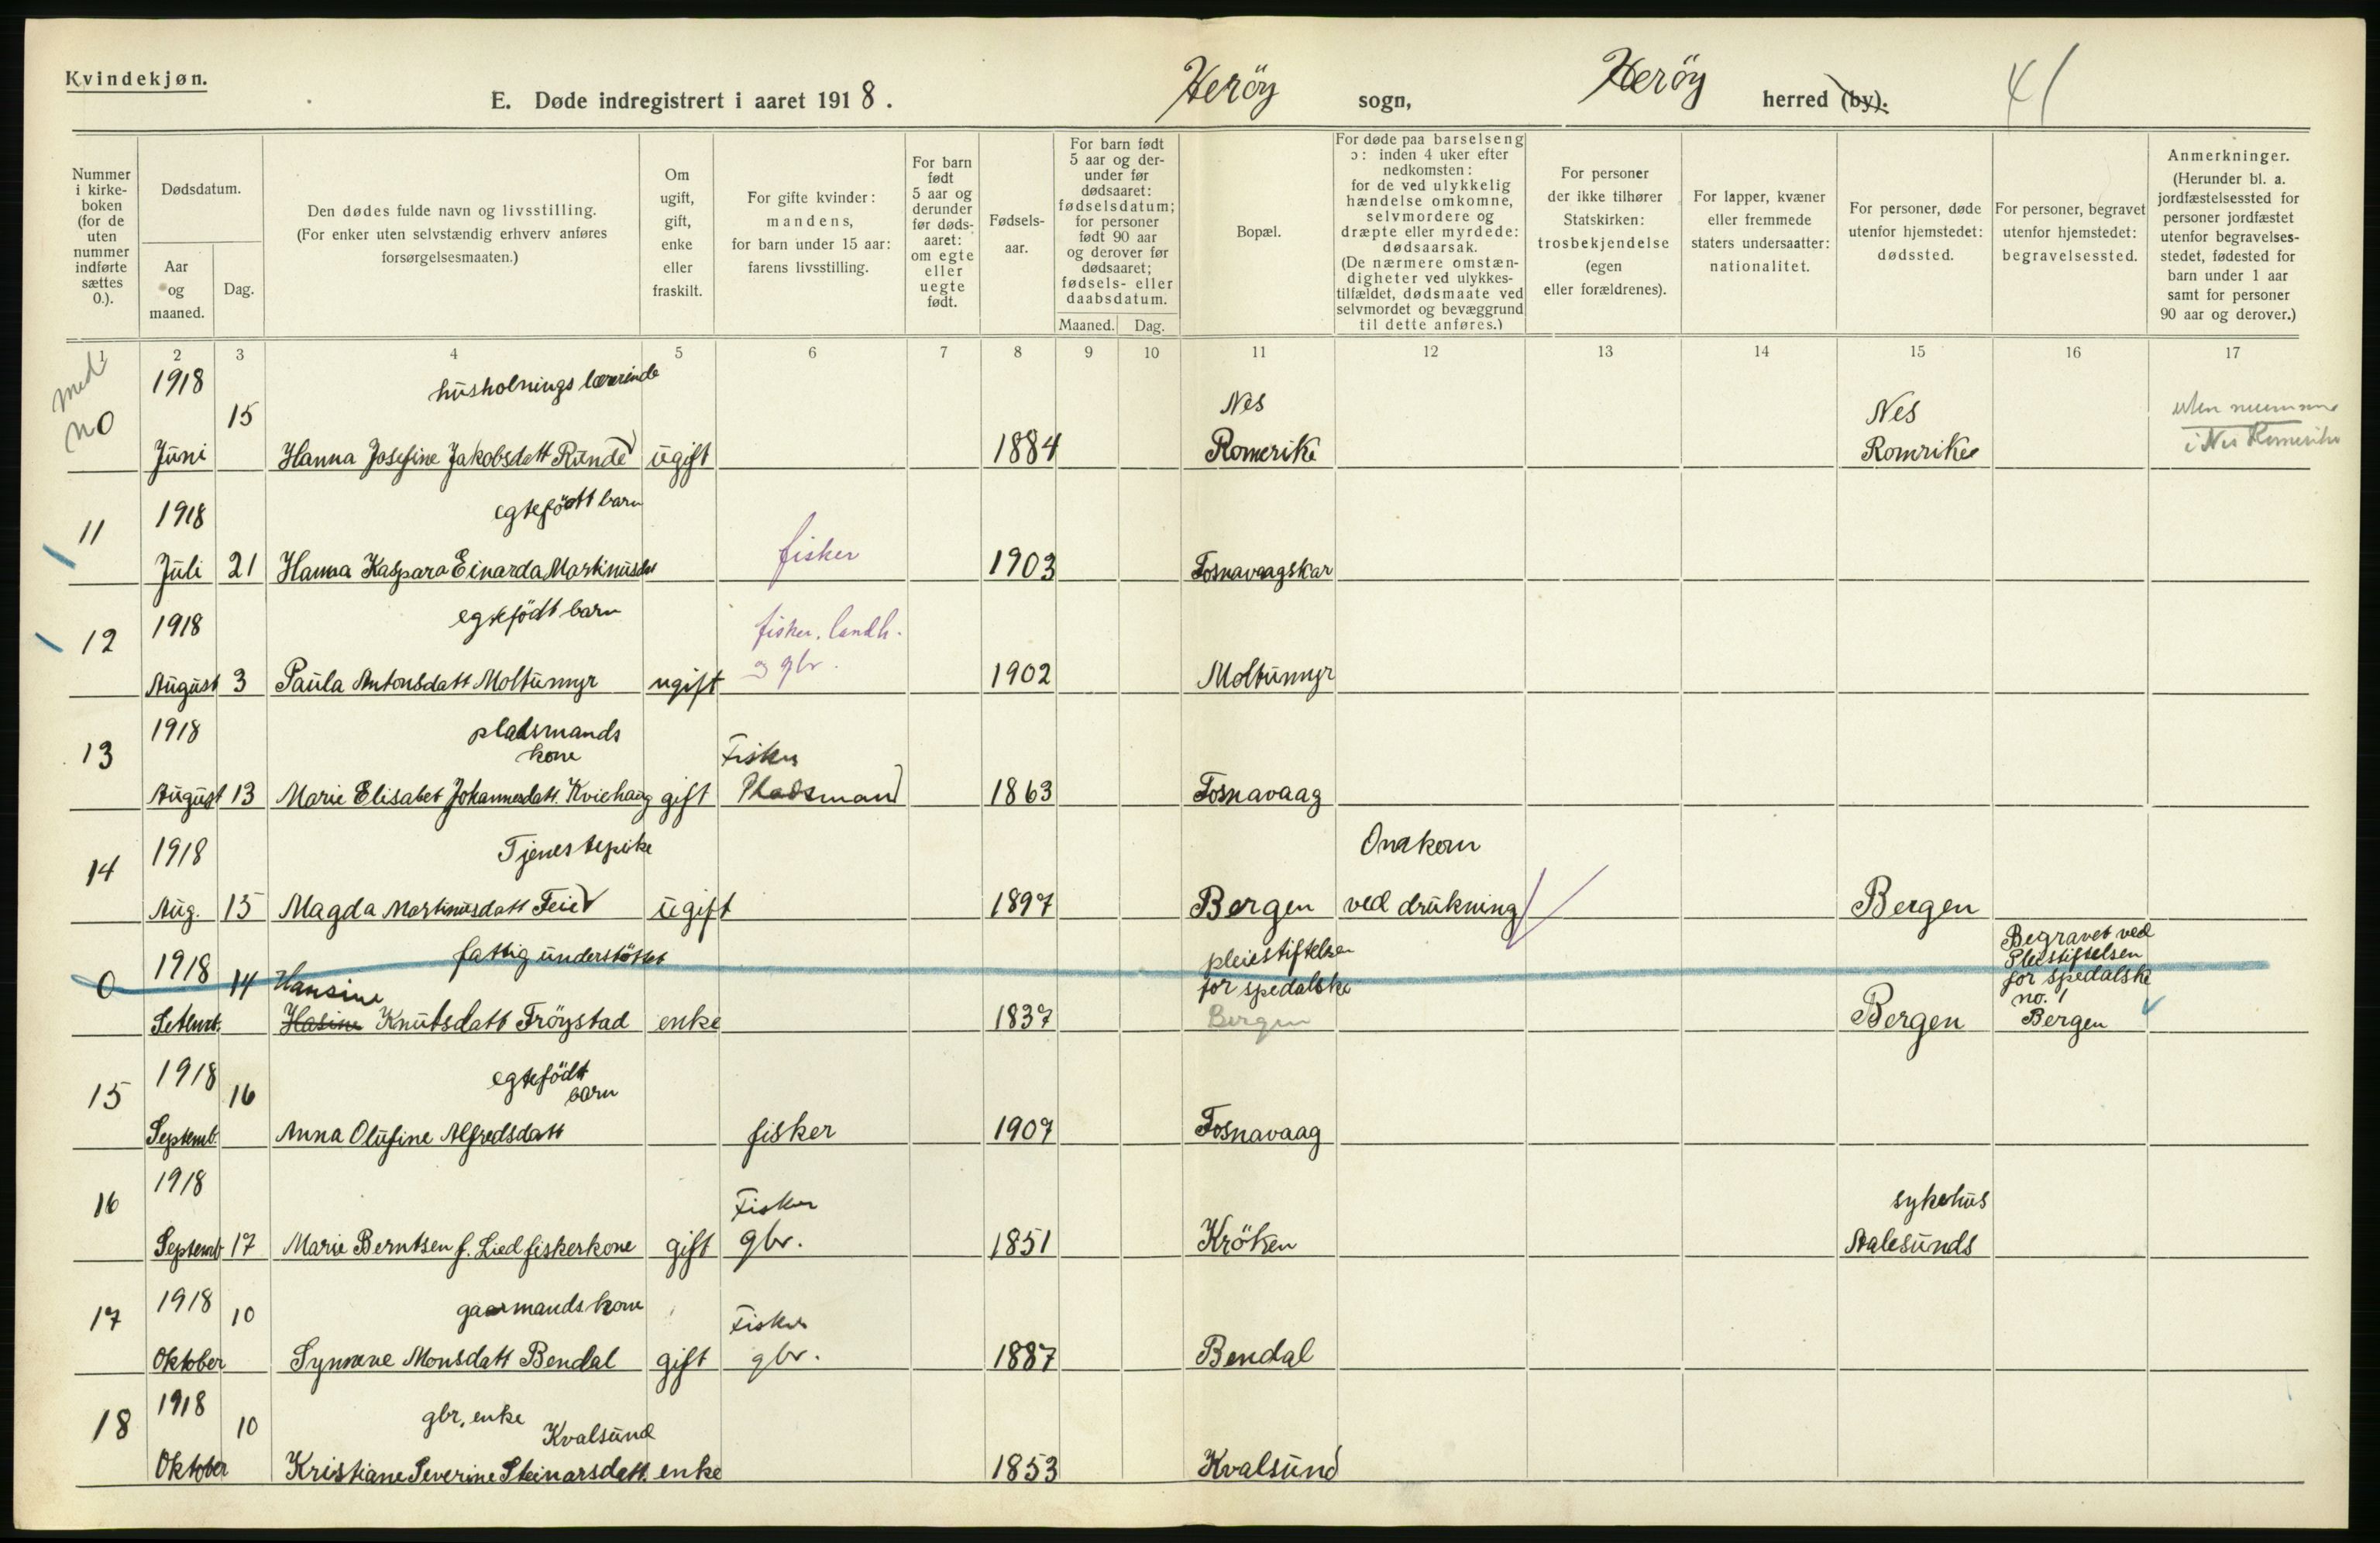 Kvindekjøn.
E. Døde indregistrert i aaret 1918.
Heröy sogn,
Heröy herred (by).
41
Nummer i kirke-boken (for de uten nummer indførte sættes 0.).
Dødsdatum.
Aar og maaned.
Dag.
Den dødes fulde navn og livsstilling.
(For enker uten selvstændig erhverv anføres
forsørgelsesmaaten.)
Om ugift, gift, enke eller fraskilt.
For gifte kvinder:
mandens,
for barn under 15 aar:
farens livsstilling.
For barn født 5 aar og derunder før døds-aaret: om egte eller uegte født.
Fødsels-aar.
For barn født 5 aar og der-under før dødsaaret: fødselsdatum; for personer født 90 aar og derover før dødsaaret; fødsels- eller daabsdatum.
Maaned.
Dag.
Bopæl.
For døde paa barselseng
ɔ: inden 4 uker efter
nedkomsten:
for de ved ulykkelig
hændelse omkomne,
selvmordere og
dræpte eller myrdede:
dødsaarsak.
(De nærmere omstæn-
digheter ved ulykkes-
tilfældet, dødsmaate ved
selvmordet og bevæggrund
til dette anføres.)
For personer
der ikke tilhører
Statskirken:
trosbekjendelse
(egen
eller forældrenes).
For lapper, kvæner
eller fremmede
staters undersaatter:
nationalitet.
For personer, døde
utenfor hjemstedet:
dødssted.
For personer, begravet
utenfor hjemstedet:
begravelsessted.
Anmerkninger.
(Herunder bl. a.
jordfæstelsessted for
personer jordfæstet
utenfor begravelses-
stedet, fødested for
barn under 1 aar
samt for personer
90 aar og derover.)
1 2 3 4 5 6 7 8 9 10 11 12 13 14 15 16 17
med
no
1918 husholnings lærerinde Nes Nes uten
0 15
Juni Hanna Josefine Jakobsdatt Runde ugift 1884 Romerike Romrike i Nes Romerike
11 1918 egtefödt barn
Juli 21 Hanna Kaspara Einarda Martinusdtt fisker 1903 Fosnavaagskar
12 1918 egtefödt barn fisker, landh.
og gbr.
August 3 Paula Antonsdatt Moltumyr ugift 1902 Moltumyr
13 1918 pladsmands
kone Fisker
August 13 Marie Elisabet Johannesdatt. Kviehaug gift Pladsmand 1863 Fosnavaag
14 1918 Tjenestepike Omkom
Aug. 15 Magda Martinusdatt Feie ugift 1897 Bergen ved drukning Bergen
0 1918 14 fattig understöttet pleiestiftelsen
for spedalske
Begravet ved
Pleiestiftelsen
for spedalske
no. 1
Hansine
Setembt. Hasine Knutsdatt Fröystad enke 1837 Bergen Bergen Bergen
15 1918 16 egtefödt
barn
Septemb. Anna Olufine Alfredsdatt fisker 1907 Fosnavaag
16 1918 Fisker sykehus
Septemb 17 Marie Berntsen f. Lied fiskerkone gift gbr. 1851 Kröken Aalesunds
17 1918 10 gaarmands kone Fisker
Oktober Synneve Monsdatt Bendal gift gbr. 1887 Bendal
18 1918 10 gbr. enke
Kvalsund
Oktober Kristiane Severine Steinarsdatt. enke 1853 Kvalsund